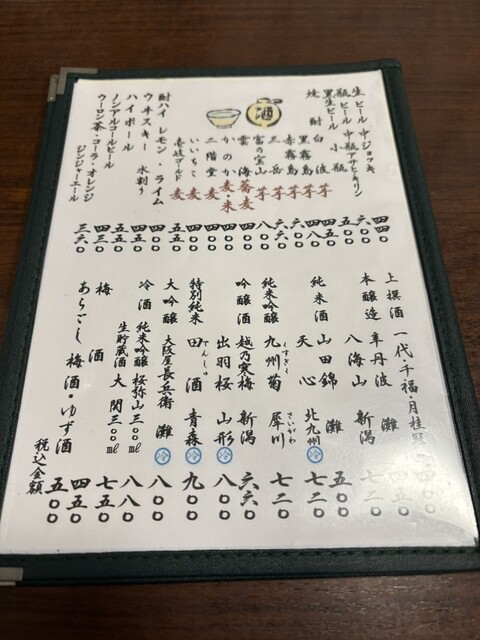 生ビール 中ジョッキ
瓶ビール 中瓶 アサヒ・キリン
小瓶
黒生ビール
焼酎 白波 芋
黒霧島 芋
赤霧島 芋
三岳 芋
富の宝山 芋 八〇〇
雲海 蕎麦
かのか 麦・米
二階堂 麦
いいちこ 麦
壱岐ゴールド 麦
酎ハイ レモン・ライム 四五〇
ウヰスキー 水割り 五五〇
ハイボール 五五〇
ノンアルコールビール 四三〇
ウーロン茶・コーラ・オレンジ 三六〇
ジンジャーエール
酒
上撰酒 一代千福・月桂冠
本醸造 辛丹波 灘 四五〇
八海山 新潟 七二〇
純米酒 山田錦 灘 五〇〇
天心 北九州 冷 七二〇
純米吟醸 九州菊 くすぎく 犀川 さいがわ 七二〇
吟醸酒 越乃寒梅 新潟 六六〇
出羽桜 山形 冷 八〇〇
特別純米 田酒 でんしゅ 青森 冷 九〇〇
大吟醸 大阪屋長兵衛 灘 冷 八〇〇
冷酒 純米吟醸 桜弥山 三〇〇ml 八八〇
生貯蔵酒 大関 三〇〇ml 七五〇
梅酒 四五〇
あらごし 梅酒・ゆず酒 五〇〇
税込金額